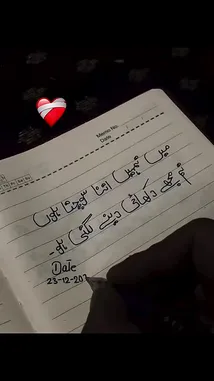 Memo No.
Date
میں تمہیں اتنا سوچتا ہوں
تم مجھے دکھائی دینے لگتی ہو۔
Date
23-12-202